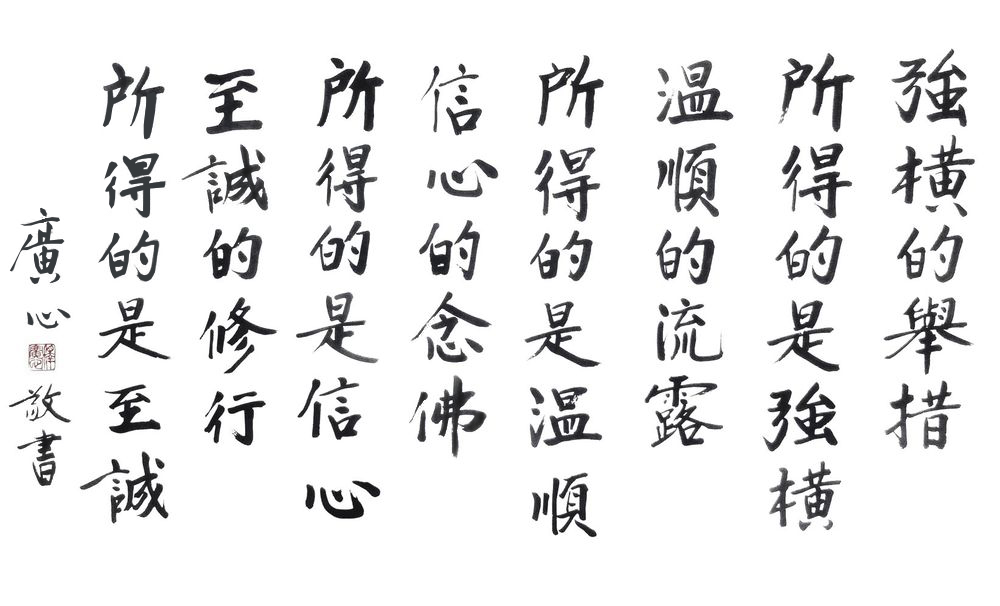 強橫的舉措
所得的是強橫
溫順的流露
所得的是溫順
信心的念佛
所得的是信心
至誠的修行
所得的是至誠
廣心敬書